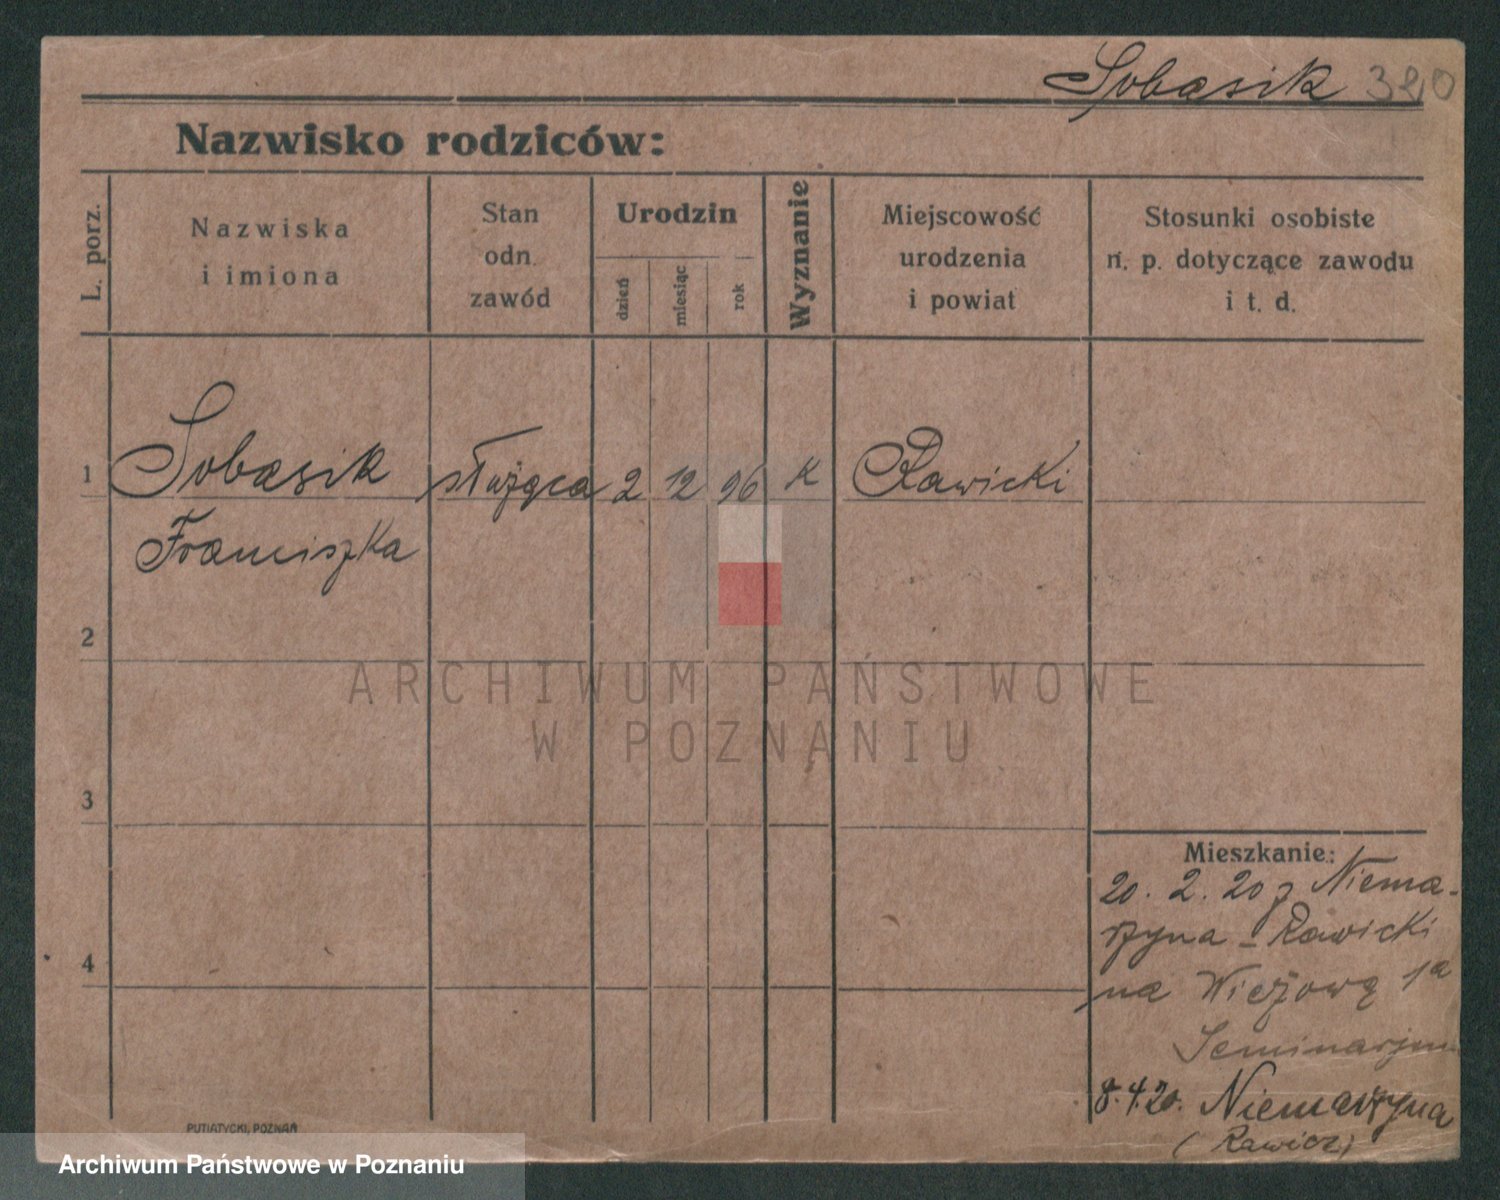 Sobasik 320
Nazwisko rodziców:
L. porz.
Nazwiska
i imiona
Stan
odn.
zawód
Urodzin
dzień
miesiąc
rok
Wyznanie
Miejscowość
urodzenia
i powiat
Stosunki osobiste
n. p. dotyczące zawodu
i t. d.
1 Sobasik służąca 2 12 96 K Rawicki
Franciszka
2
3
4
Mieszkanie:
20. 2. 20 z Niema-
rzyna - Rawicki
na Wieżową 1a
Seminarjum
8.4.20. Niemarzyna
(Rawicz)
PUTIATYCKI, POZNAŃ
ARCHIWUM PAŃSTWOWE
W POZNANIU
Archiwum Państwowe w Poznaniu